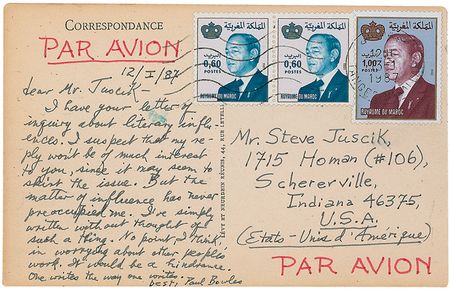 CORRESPONDANCE
PAR AVION
12/I/87
Dear Mr. Juscik –
I have your letter of
inquiry about literary influ-
ences. I suspect that my re-
ply won't be of much interest
to you, since it may seem to
skirt the issue. But the
matter of influence has never
preoccupied me. I've simply
written without thought of
such a thing. No point, I think,
in worrying about other peoples'
work. It would be a hindrance.
One writes the way one writes.
best, Paul Bowles
LEVY ET NEURDEIN RÉUNIS, 44, RUE
المملكة المغربية
البريد
0,60
POSTES
ROYAUME DU MAROC
المملكة المغربية
البريد
0,60
POSTES
ROYAUME DU MAROC
المملكة المغربية
1,00
POSTES
ROYAUME DU MAROC
Mr. Steve Juscik,
1715 Homan (#106),
Schererville,
Indiana 46375,
U.S.A.
(Etats-Unis d'Amérique)
PAR AVION